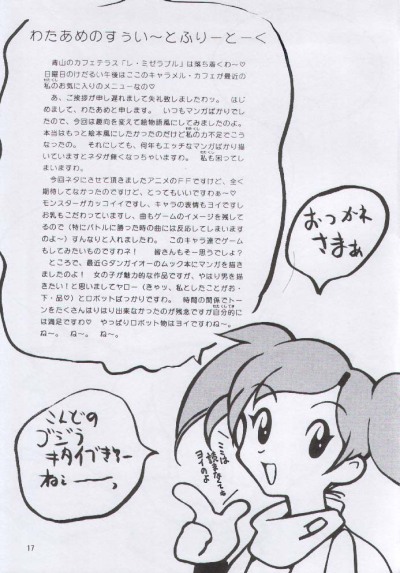 わたあめのすうぃ～とふりーとーく
青山のカフェテラス「レ・ミゼラブル」は落ち着くわ～♡
日曜日のけだるい午後はここのキャラメル・カフェが最近の
私のお気に入りのメニューなの♡
あ、ご挨拶が申し遅れまして失礼致しましたわッ。 はじ
めまして、わたあめと申します。 いつもマンガばかりでし
たので、今回は趣向を変えて絵物語風にしてみましたのよ。
本当はもっと絵本風にしたかったのだけど私の力不足でこう
なったの。 それにしても、何年もエッチなマンガばかり描
いていますとネタが無くなっちゃいますわ。 私も困ってし
まいますわ。
今回ネタにさせて頂きましたアニメのＦＦですけど、全く
期待してなかったのですけど、とってもいいですわぁ～♡
モンスターがカッコイイですし、キャラの表情もヨイですし
お乳もこだわっていますし、曲もゲームのイメージを残して
るので（特にバトルに勝った時の曲には反応してしまいます
のよ～）すんなりと入れましたわ。 このキャラ達でゲーム
もしてみたいものですわネ！ 皆さんもそー思うでしょ？
ところで、最近Ｇダンガイオーのムック本にマンガを描き
ましたのよ！ 女の子が魅力的な作品ですが、やはり男を描
きたい！と思いましてヤロー（きゃッ、私としたことがお・
下・品♡）とロボットばっかりですわ。 時間の関係でトー
ンをたくさんはりはり出来なかったのが残念ですが自分的に
は満足ですわ♡ やっぱりロボット物はヨイですわな～。
ね～。 ね～。 ね～。
おつかれ
さまぁ
こんどの
ゴジラ
キタイブキャー
ねぇーーー。
ここは
読まなくて
ヨイのよ
17